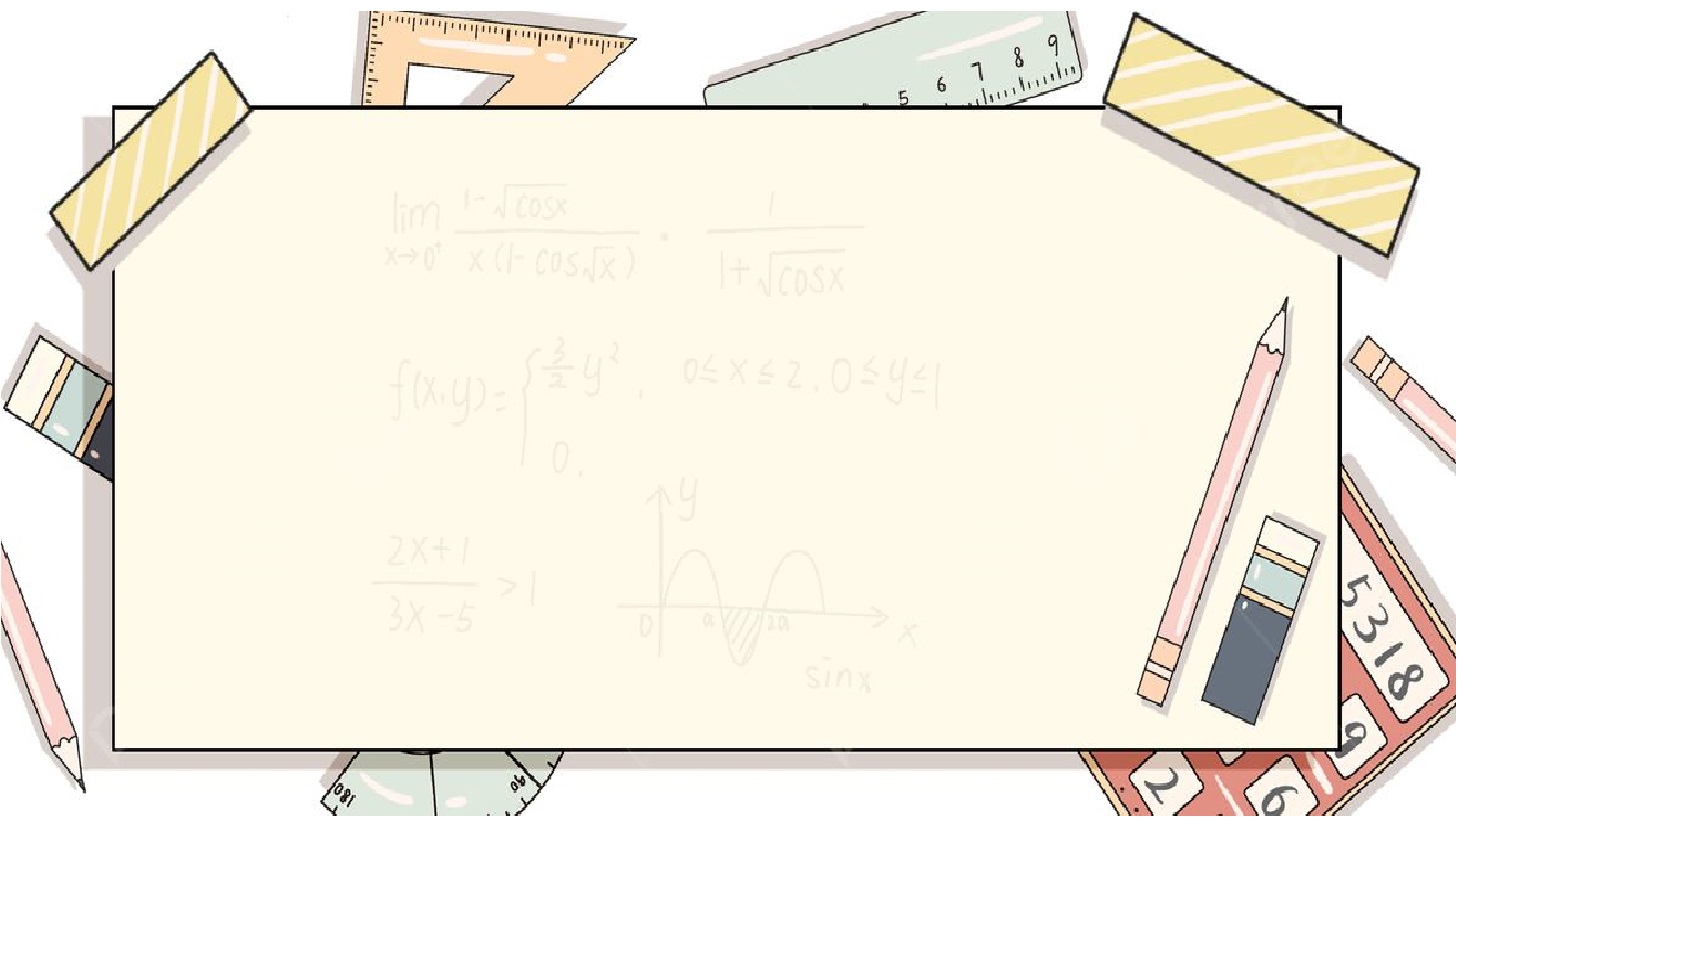 5 6 7 8 9
lim x→0⁺ 1-√cosx / x(1-cos√x) · 1 / 1+√cosx
f(x,y)= { 3/2 y², 0≤x≤2, 0≤y≤1
0.
y
2x+1 / 3x-5 > 1
0 a 2a x
sinx
5318
9
2 6
180 90